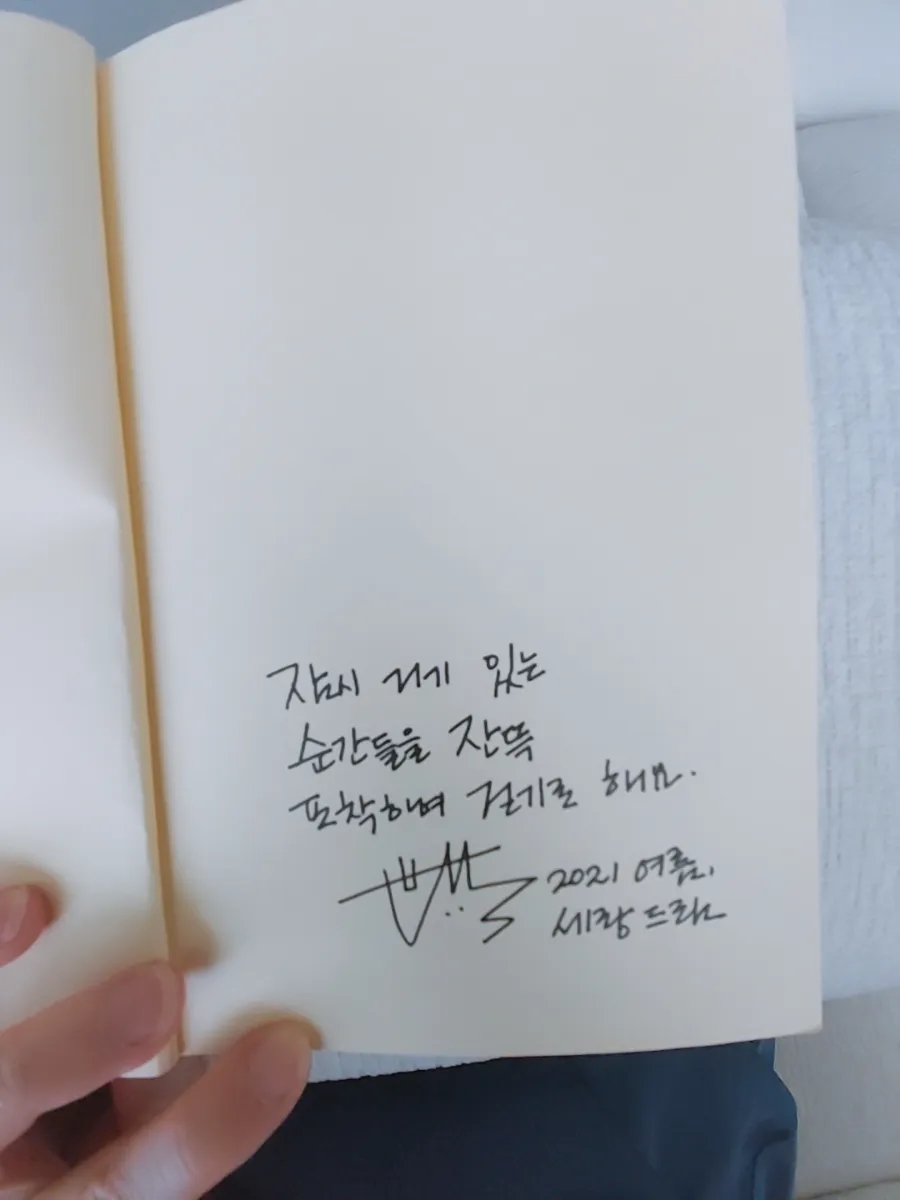 잠시 거기 있는
순간들을 잔뜩
포착하며 걷기로 해요.
2021 여름,
세랑 드림